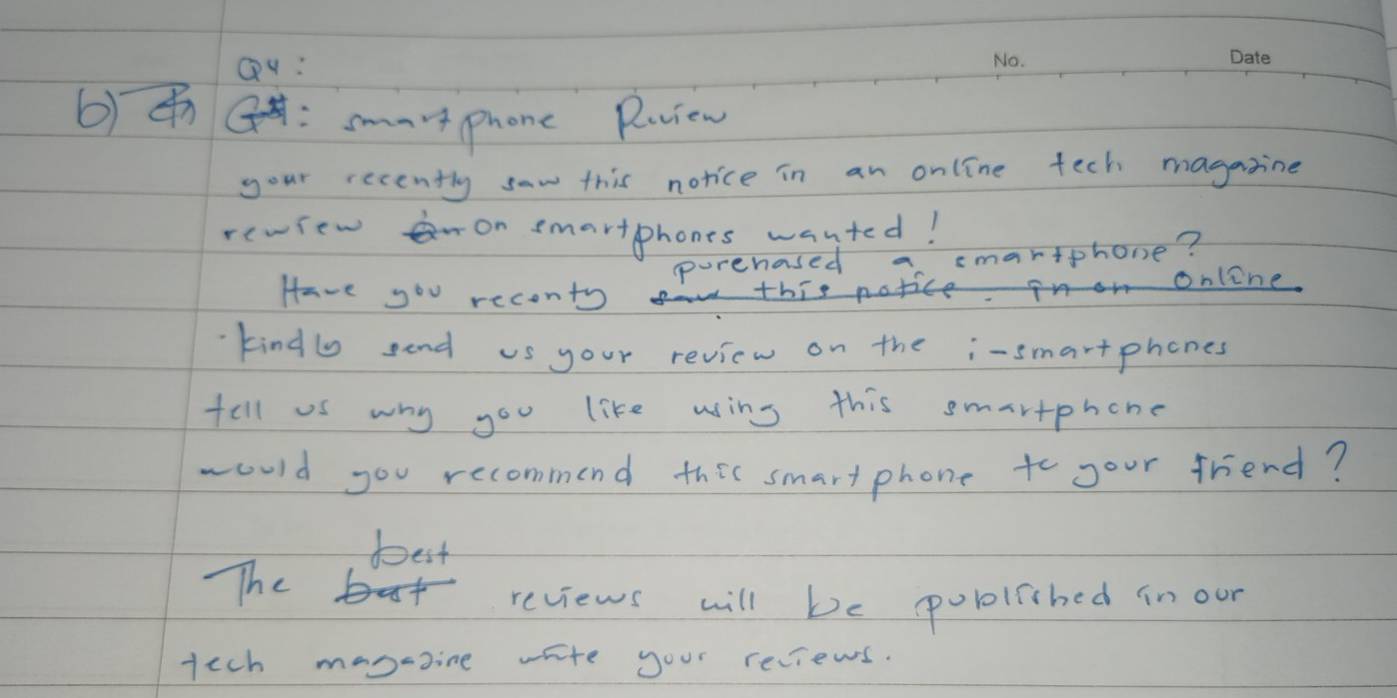 No. Date
Q4:
b) Q4: smartphone Review
your recently saw this notice in an online tech magazine
rewiew on smartphones wanted!
purchased a smartphone?
Have you recenty saw this notice. in on online.
kindly send us your review on the i-smartphones
tell us why you like using this smartphone
would you recommend this smartphone to your friend?
best
The but reviews will be published in our
tech magazine write your reviews.